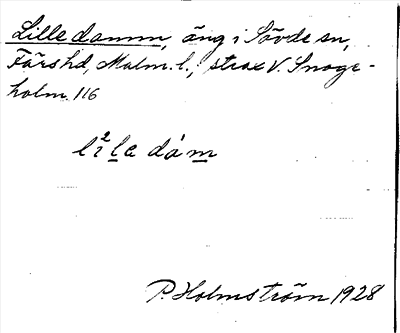 Lilledamm, äng i Sövde sn,
Färs hd, Malm. l., strax V. Snoge-
holm. 116
li²la dám
P. Holmström 1928